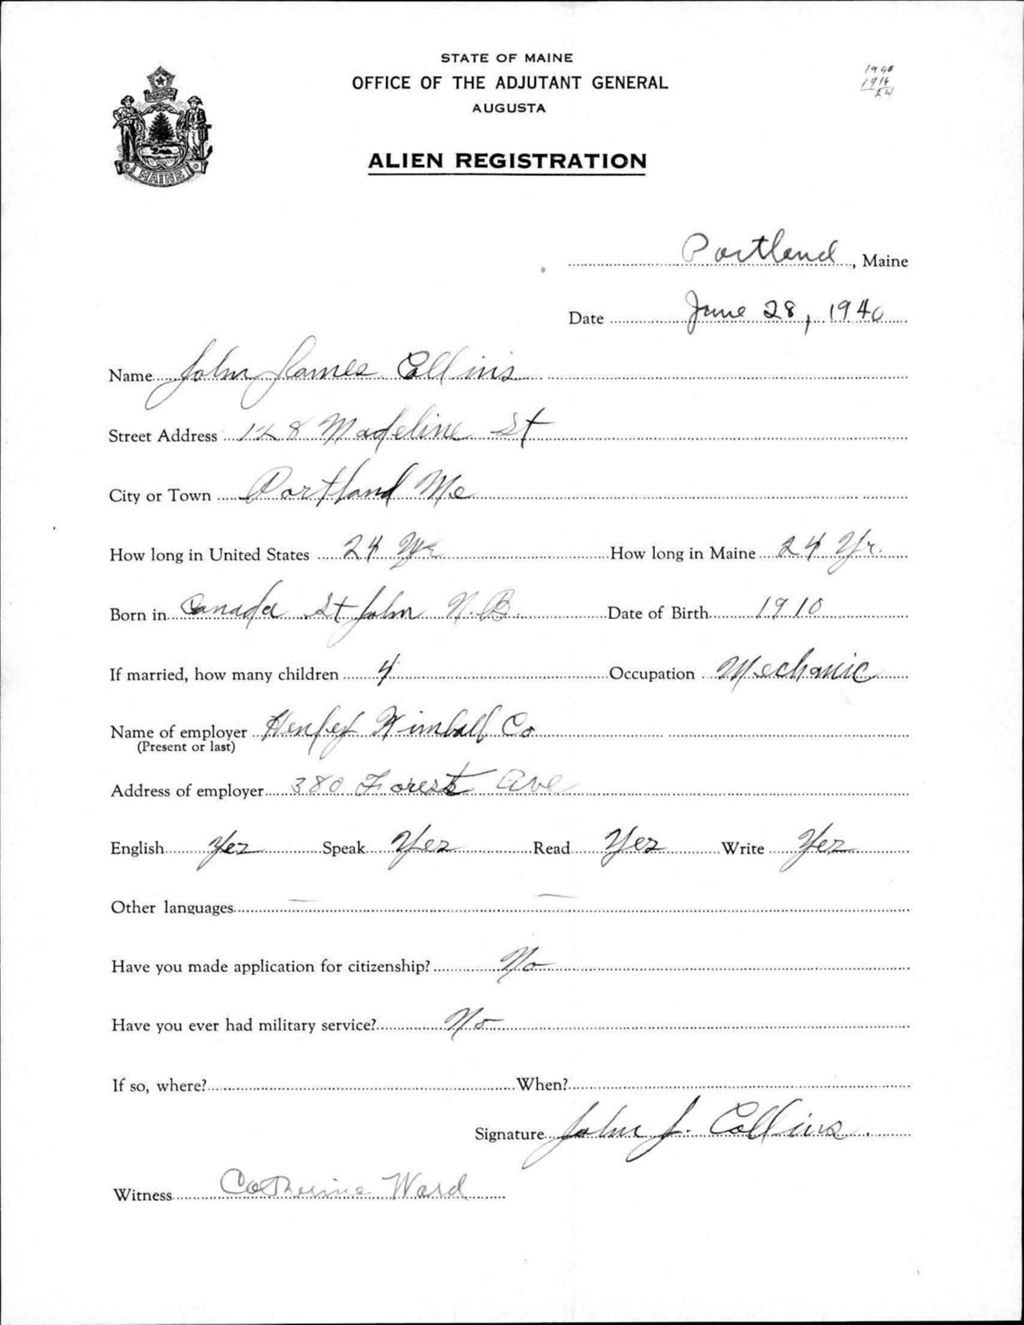 STATE OF MAINE
OFFICE OF THE ADJUTANT GENERAL
AUGUSTA
1940
1916
24
MAINE
ALIEN REGISTRATION
Portland, Maine
Date June 28, 1940
Name John James Collins
Street Address 128 Madeline St
City or Town Portland Me
How long in United States 24 Yr How long in Maine 24 Yr.
Born in Canada St John N.B. Date of Birth 1910
If married, how many children 4 Occupation Mechanic
Name of employer Henley Kimball Co
(Present or last)
Address of employer 380 Forest Ave
English Yes Speak Yes Read Yes Write Yes
Other languages — —
Have you made application for citizenship? No
Have you ever had military service? No
If so, where? When?
Signature John J. Collins.
Witness Catherine Ward